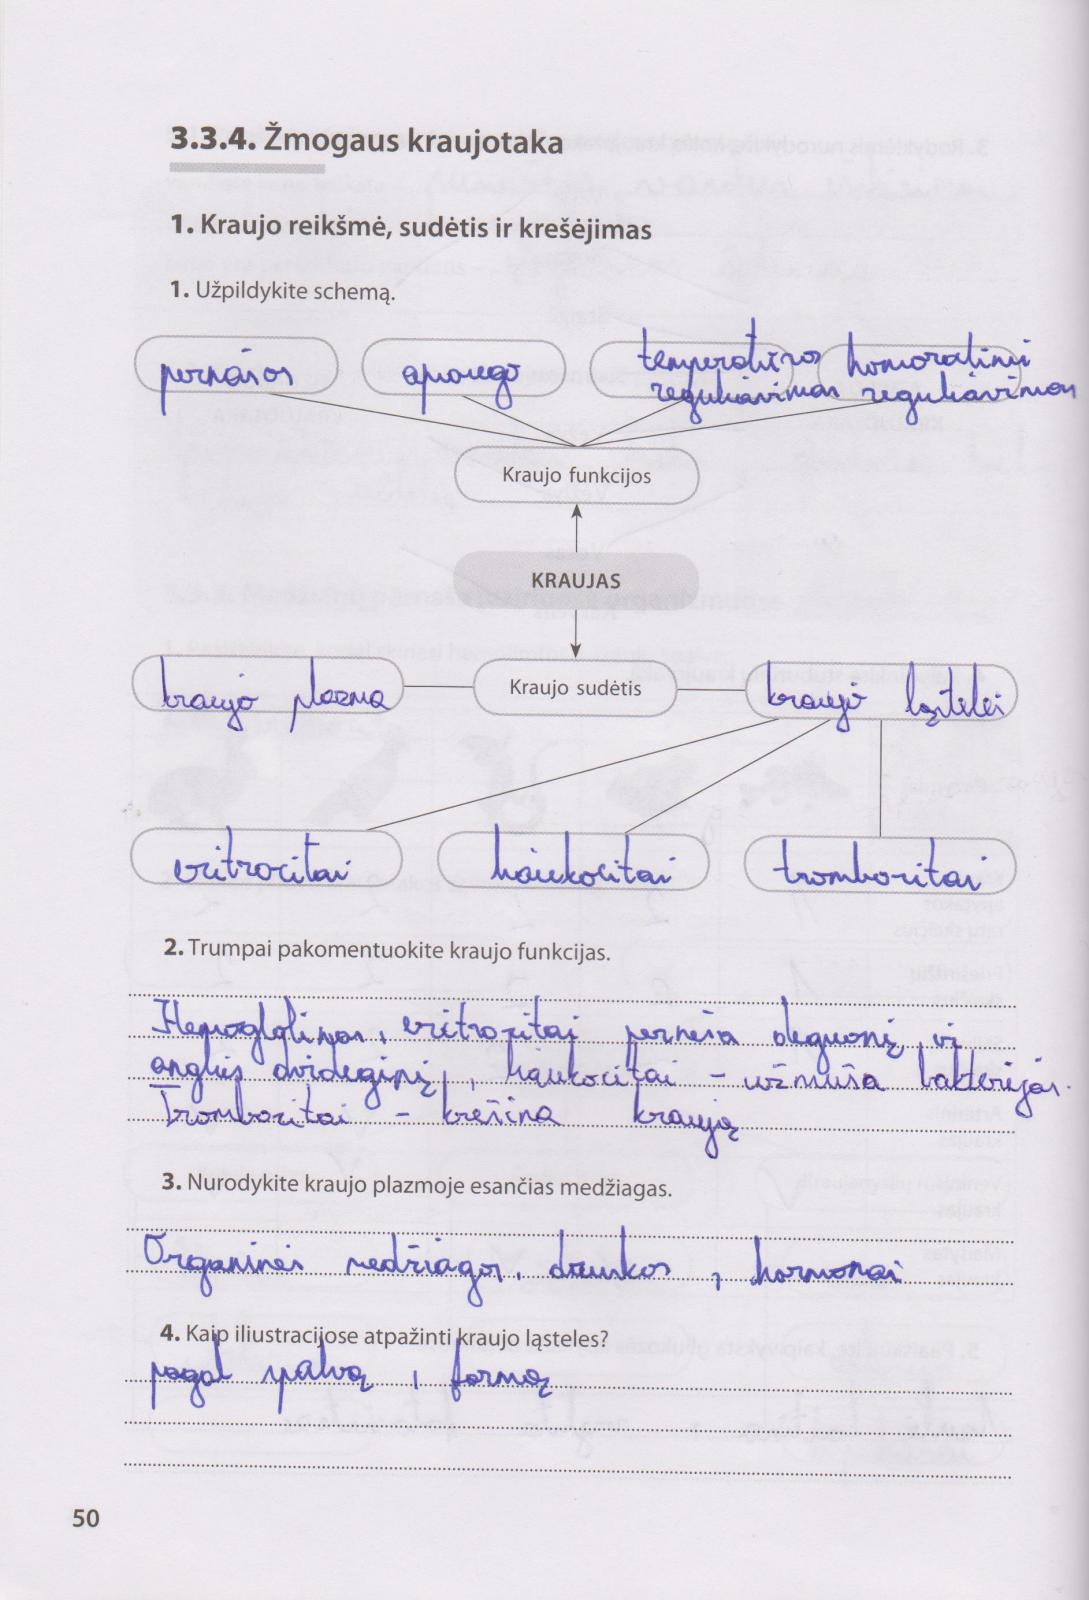 3.3.4. Žmogaus kraujotaka
1. Kraujo reikšmė, sudėtis ir krešėjimas
1. Užpildykite schemą.
pernašos apsaugo temperatūros homoralinii
reguliavimas reguliavimas
Kraujo funkcijos
KRAUJAS
kraujo plazma Kraujo sudėtis kraujo ląstelėi
eritrocitai leiukocitai trombocitai
2. Trumpai pakomentuokite kraujo funkcijas.
Hemoglobinas, eritrocitai perneša deguonį, vi
anglies dvideginį, leiukocitai – užmuša bakterijas.
Trombocitai – krešina kraują
3. Nurodykite kraujo plazmoje esančias medžiagas.
Organinės medžiagos, druskos, hormonai
4. Kaip iliustracijose atpažinti kraujo ląsteles?
pagal spalvą, formą
50